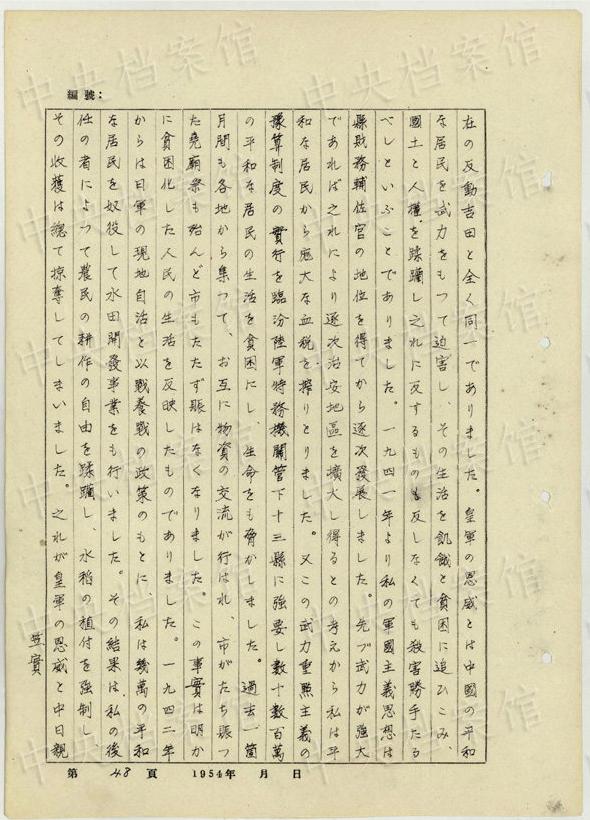 編號：
在の反動吉田と全く同一でありました。皇軍の恩威とは中國の平和
な居民を武力をもつて迫害し、その生活を飢餓と貧困に追ひこみ、
國土と人權を蹂躙し之れに反するものも反しなくても殺害勝手たる
べしといふことでありました。一九四一年より私の軍國主義思想は
縣財務輔佐官の地位を得てから逐次發展しました。先づ武力が強大
であれば之れにより逐次治安地區を擴大し得るとの考えから私は平
和な居民から厖大な血税を搾りとりました。又この武力重點主義の
豫算制度の實行を臨汾陸軍特務機關管下十三縣に強要し數十數百萬
の平和な居民の生活を貧困にし、生命をも脅かしました。過去一箇
月間も各地から集つて、お互に物資の交流が行はれ、市がたち賑つ
た堯廟祭も殆んど市もたたず賑はなくなりました。この事實は明か
に貧困化した人民の生活を反映したものでありました。一九四二年
からは日軍の現地自活と以戰養戰の政策のもとに、私は幾萬の平和
な居民を奴役して水田開發事業をも行いました。その結果は、私の後
任の者によつて農民の耕作の自由を蹂躙し、水稻の植付を強制し、
その收獲は總て掠奪してしまいました。之れが皇軍の恩威と中日親
笠實
第 48 頁 1954年 月 日
中央档案馆